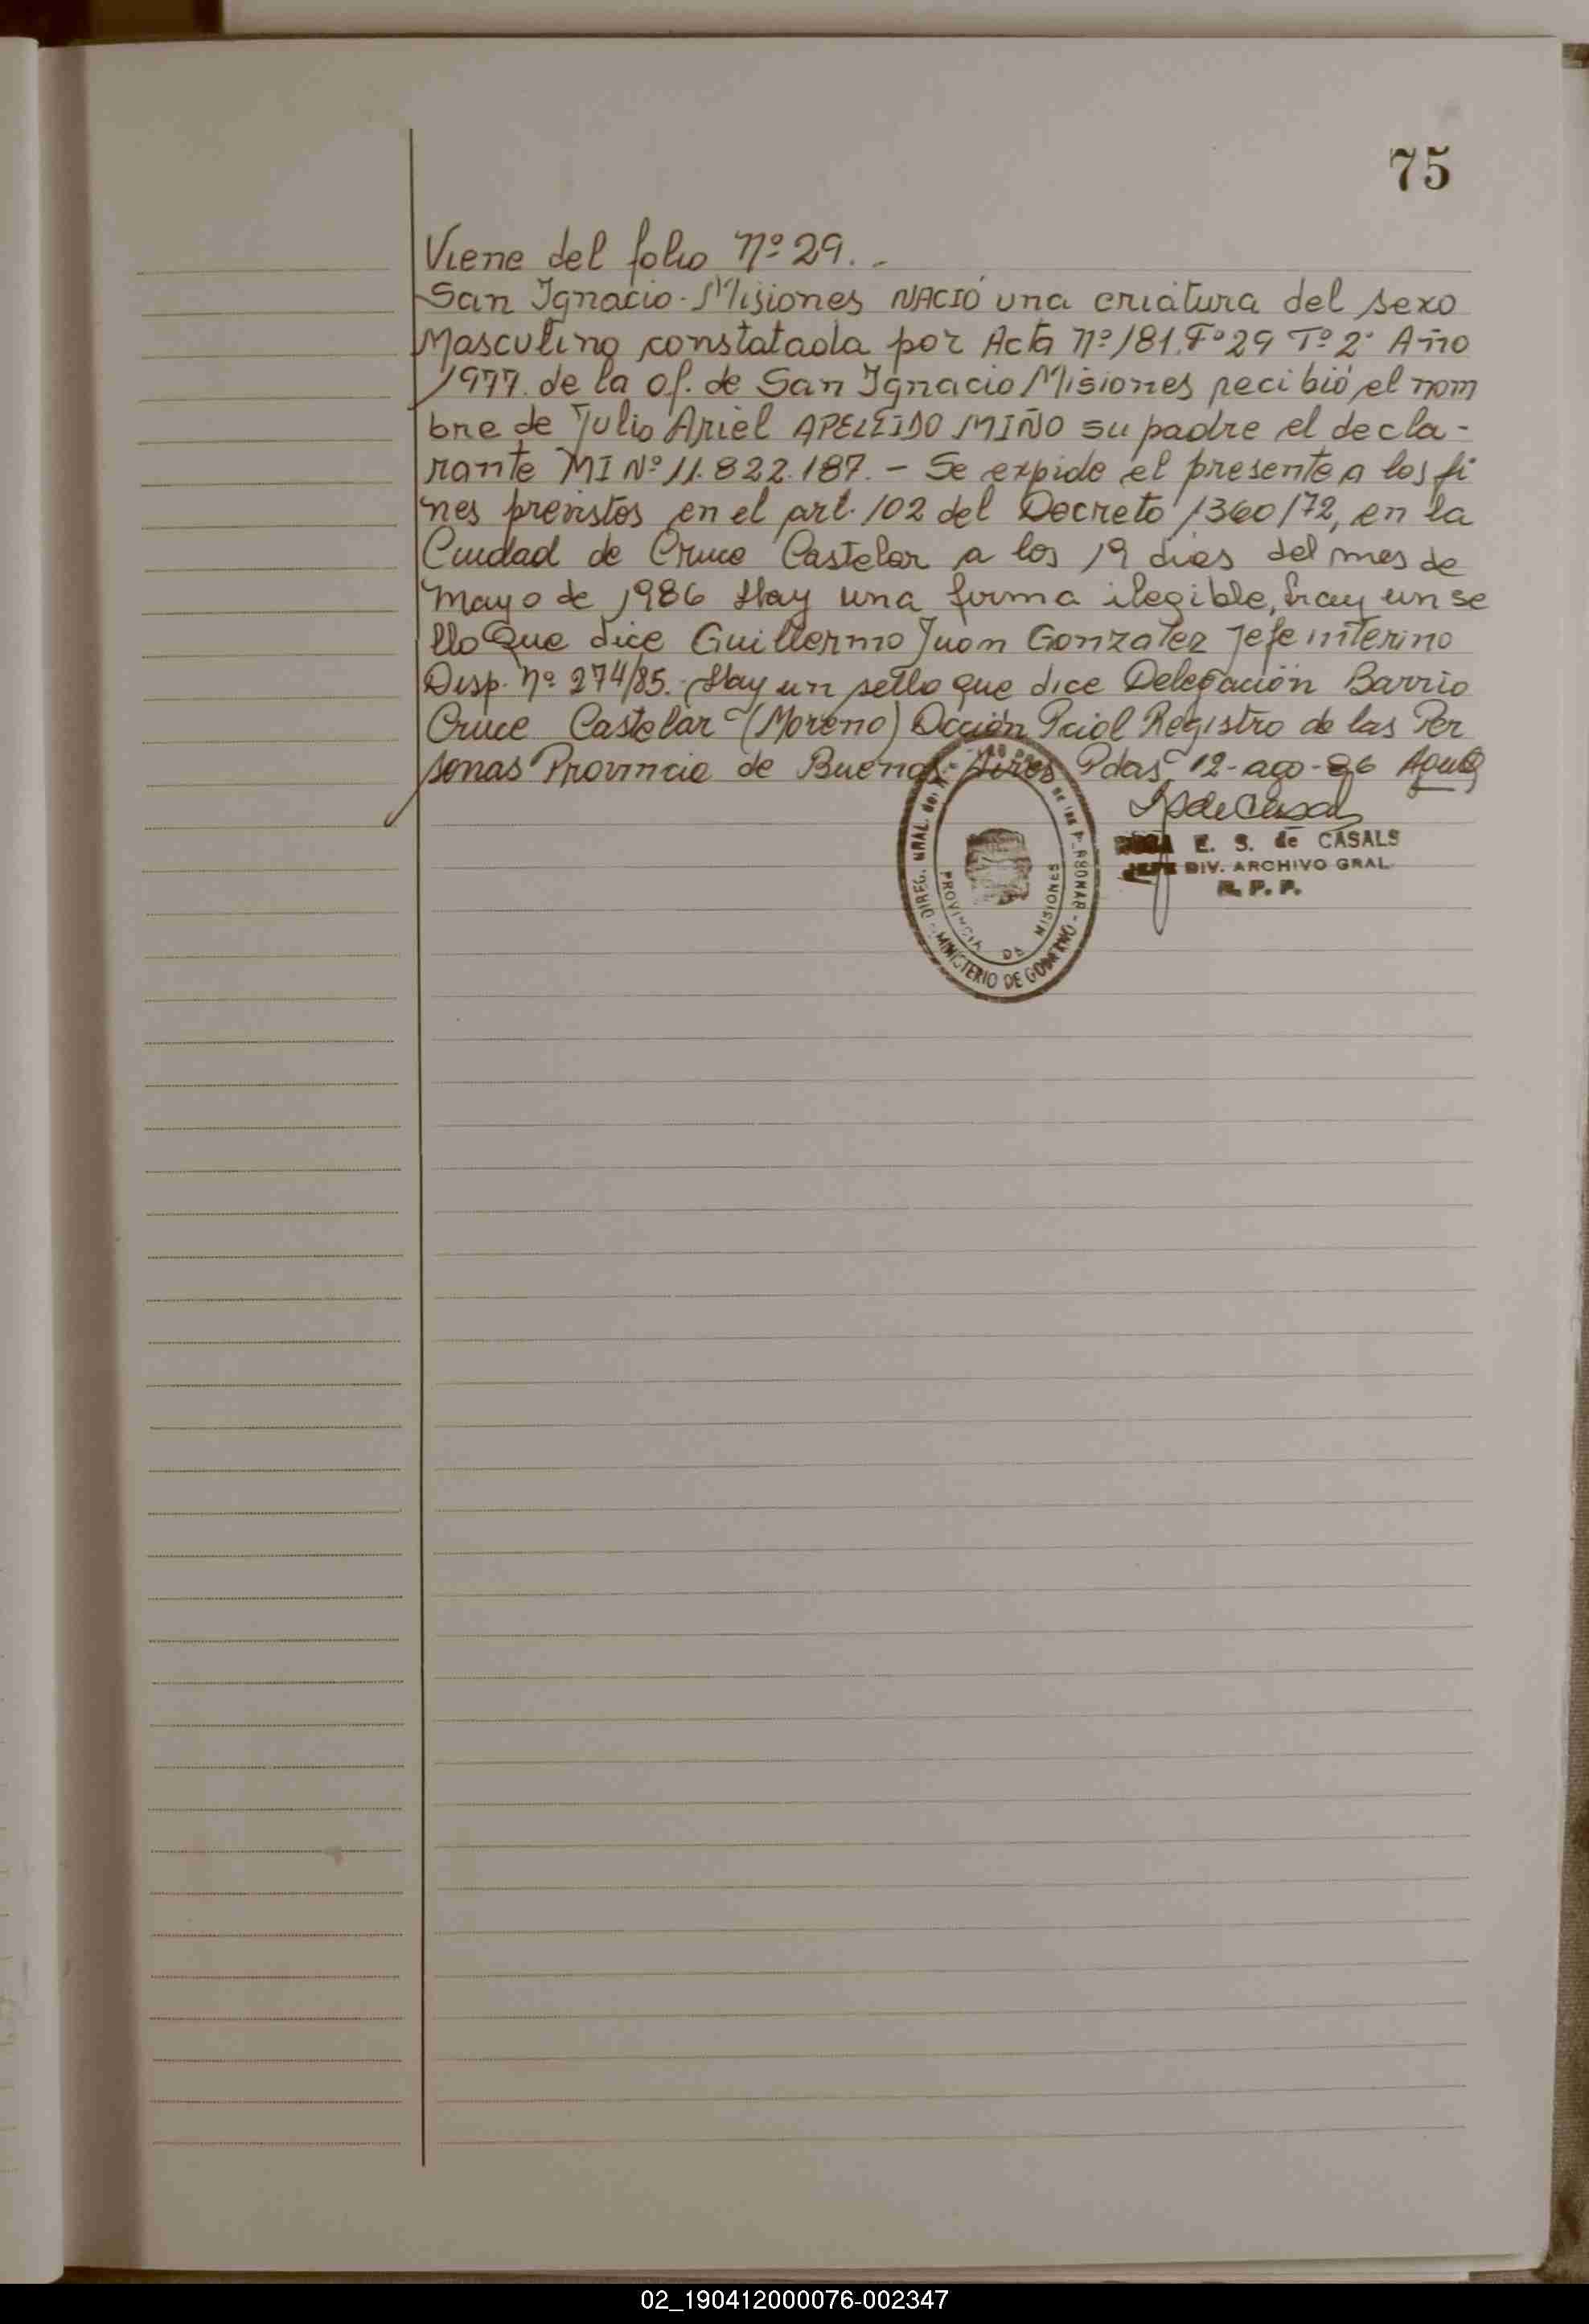 75
Viene del folio Nº 29. -
San Ignacio - Misiones NACIÓ una criatura del sexo
Masculino constatada por Acta Nº 181. Fº 29 Tº 2º Año
1977. de la of. de San Ignacio Misiones recibió el nom
bre de Julio Ariel APELLIDO MIÑO su padre el decla-
rante MI Nº 11.822.187. - Se expide el presente a los fi
nes previstos en el art. 102 del Decreto 1360/72, en la
Ciudad de Cruce Castelar a los 19 dias del mes de
mayo de 1986 Hay una firma ilegible, hay un se
llo que dice Guillermo Juan Gonzalez Jefe interino
Disp. Nº 274/85. Hay un sello que dice Delegación Barrio
Cruce Castelar (Moreno) Dcción Pcial Registro de las Per
sonas Provincia de Buenos Aires Pdas, 12-ago-86
E. S. de CASALS
JEFE DIV. ARCHIVO GRAL.
R. P. P.
DIREC. GRAL. del
PROVINCIA DE MISIONES
MINISTERIO DE GOBIERNO
02_190412000076-002347